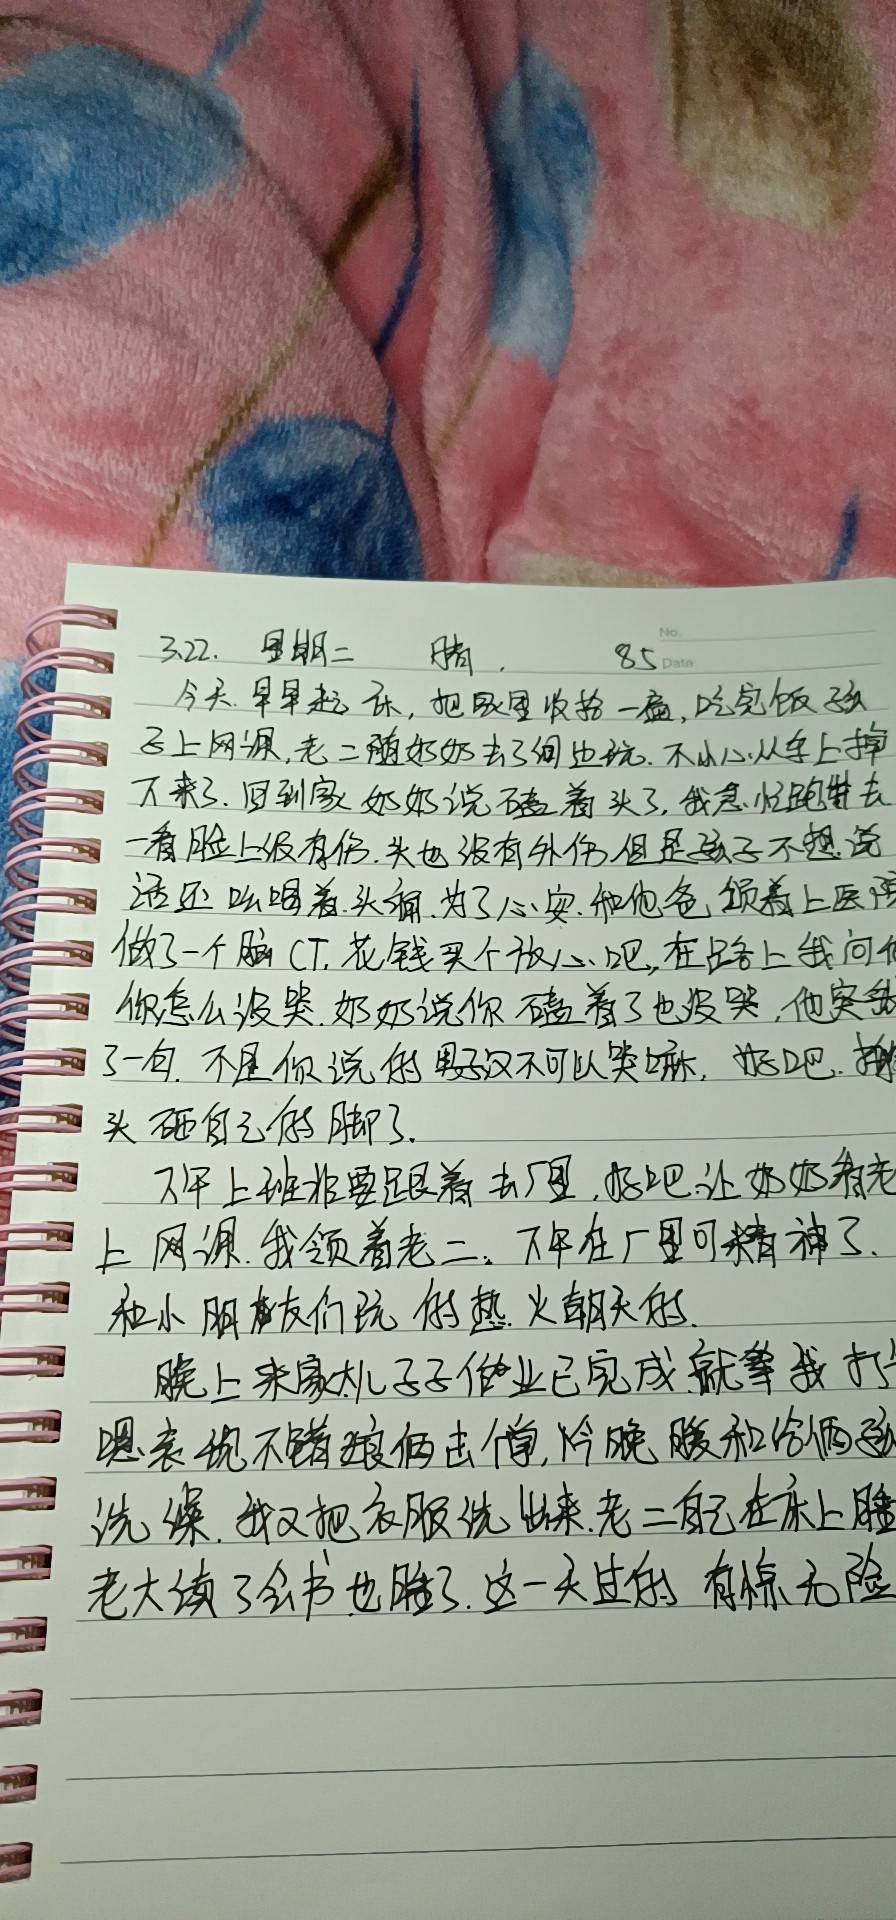 No.
3.22. 星期二 晴. 85 Date
今天早早起床,把家里收拾一遍,吃完饭孩
子上网课,老二随奶奶去了伺边玩.不小心从车上掉
下来了.回到家奶奶说磕着头了,我急忙跑过去
一看脸上没有伤.头也没有外伤但是孩子不想说
话还吆喝着头痛.为了心安.和他爸领着上医院
做了一个脑CT,花钱买个放心吧,在路上我问他
你怎么没哭.奶奶说你磕着了也没哭,他突
了一句.不是你说的男子汉不可以哭嘛,好吧.
头砸自己的脚了.
下午上班非要跟着去厂里,好吧让奶奶看老
上网课.我领着老二.下午在厂里可精神了.
和小朋友们玩的热火朝天的.
晚上来家大儿子子作业已完成就等我打
嗯表现不错娘俩出
洗澡.我又把衣服洗出来.老二自己在床上睡
老大读了会书也睡了.这一天过的有惊无险